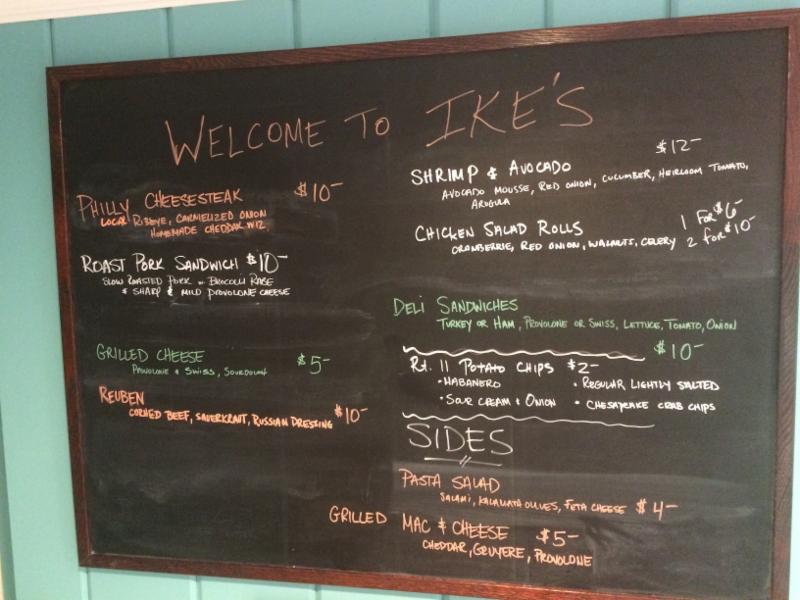 WELCOME TO IKE'S
PHILLY CHEESESTEAK $10-
LOCAL RIBEYE, CARMELIZED ONION
HOMEMADE CHEDDAR WIZ
ROAST PORK SANDWICH $10-
SLOW ROASTED PORK W/ BROCOLLI RABE
& SHARP & MILD PROVOLONE CHEESE
GRILLED CHEESE $5-
PROVOLONE & SWISS, SOURDOUGH
REUBEN
CORNED BEEF, SAUERKRAUT, RUSSIAN DRESSING $10-
SHRIMP & AVOCADO $12-
AVOCADO MOUSSE, RED ONION, CUCUMBER, HEIRLOOM TOMATO,
ARUGULA
CHICKEN SALAD ROLLS 1 FOR $6-
CRANBERRIE, RED ONION, WALNUTS, CELERY 2 for $10-
DELI SANDWICHES
TURKEY OR HAM, PROVOLONE OR SWISS, LETTUCE, TOMATO, ONION
$10-
Rt. 11 POTATO CHIPS $2-
• HABANERO • REGULAR LIGHTLY SALTED
• SOUR CREAM + ONION • CHESAPEAKE CRAB CHIPS
SIDES
PASTA SALAD
SALAMI, KALAMATA OLIVES, FETA CHEESE $4-
GRILLED MAC & CHEESE $5-
CHEDDAR, GRUYERE, PROVOLONE